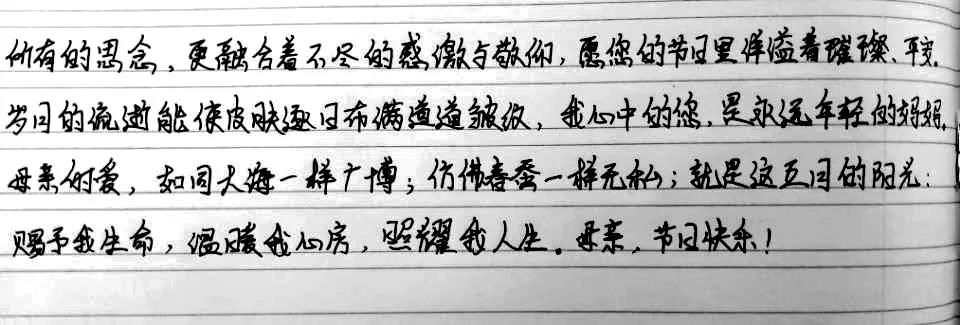 所有的思念，更融合着不尽的感激与敬仰，愿您的节日里洋溢着璀璨、平安。
岁月的流逝能使皮肤逐日布满道道皱纹，我心中的您，是永远年轻的妈妈。
母亲的爱，如同大海一样广博；仿佛春蚕一样无私；就是这五月的阳光：
赐予我生命，温暖我心房，照耀我人生。母亲，节日快乐！